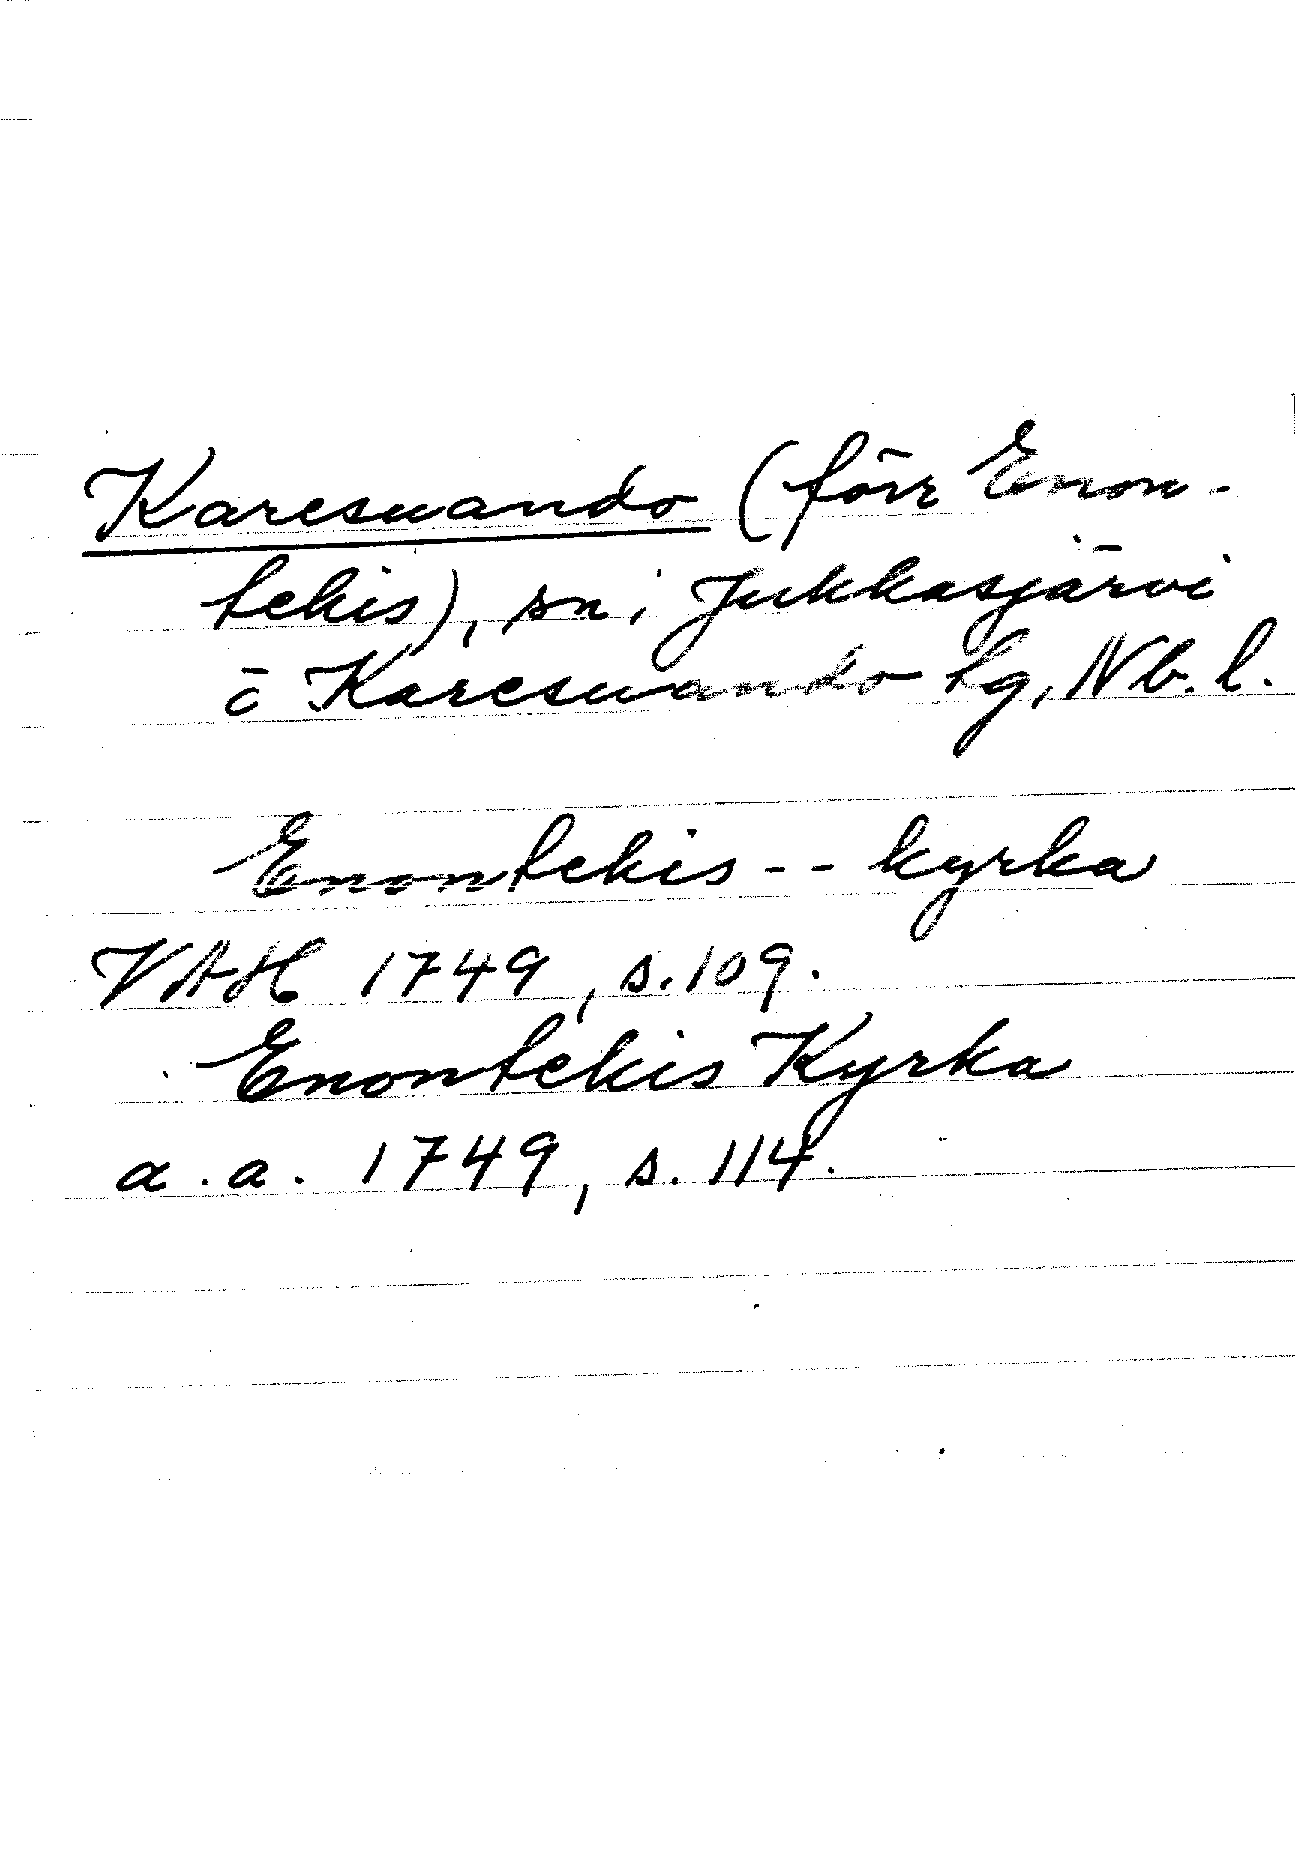 Karesuando (förr Enon-
tekis), sn i Jukkasjärvi
o Karesuando tg, Nb. l.
Enontekis -- kyrka
VAH 1749, s. 109.
Enontekis Kyrka
a. a. 1749, s. 114.